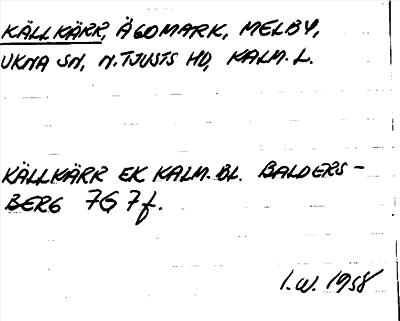 KÄLLKÄRR, ÄGOMARK, MELBY,
UKNA SN, N. TJUSTS HD, KALM. L.
KÄLLKÄRR EK KALM. BL. BALDERS-
BERG 7G 7f.
I.W. 1958